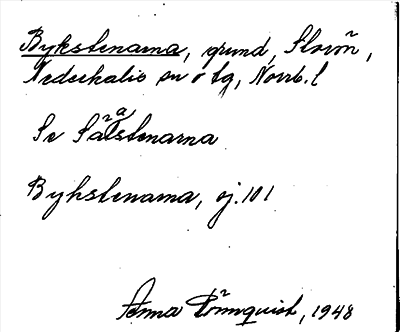 Bykstenarna, grund, Storön,
Nederkalix sn o tg, Norrb. l
Se Sälstenarna
Bykstenarna, oj. 101
Anna Rönnquist, 1948